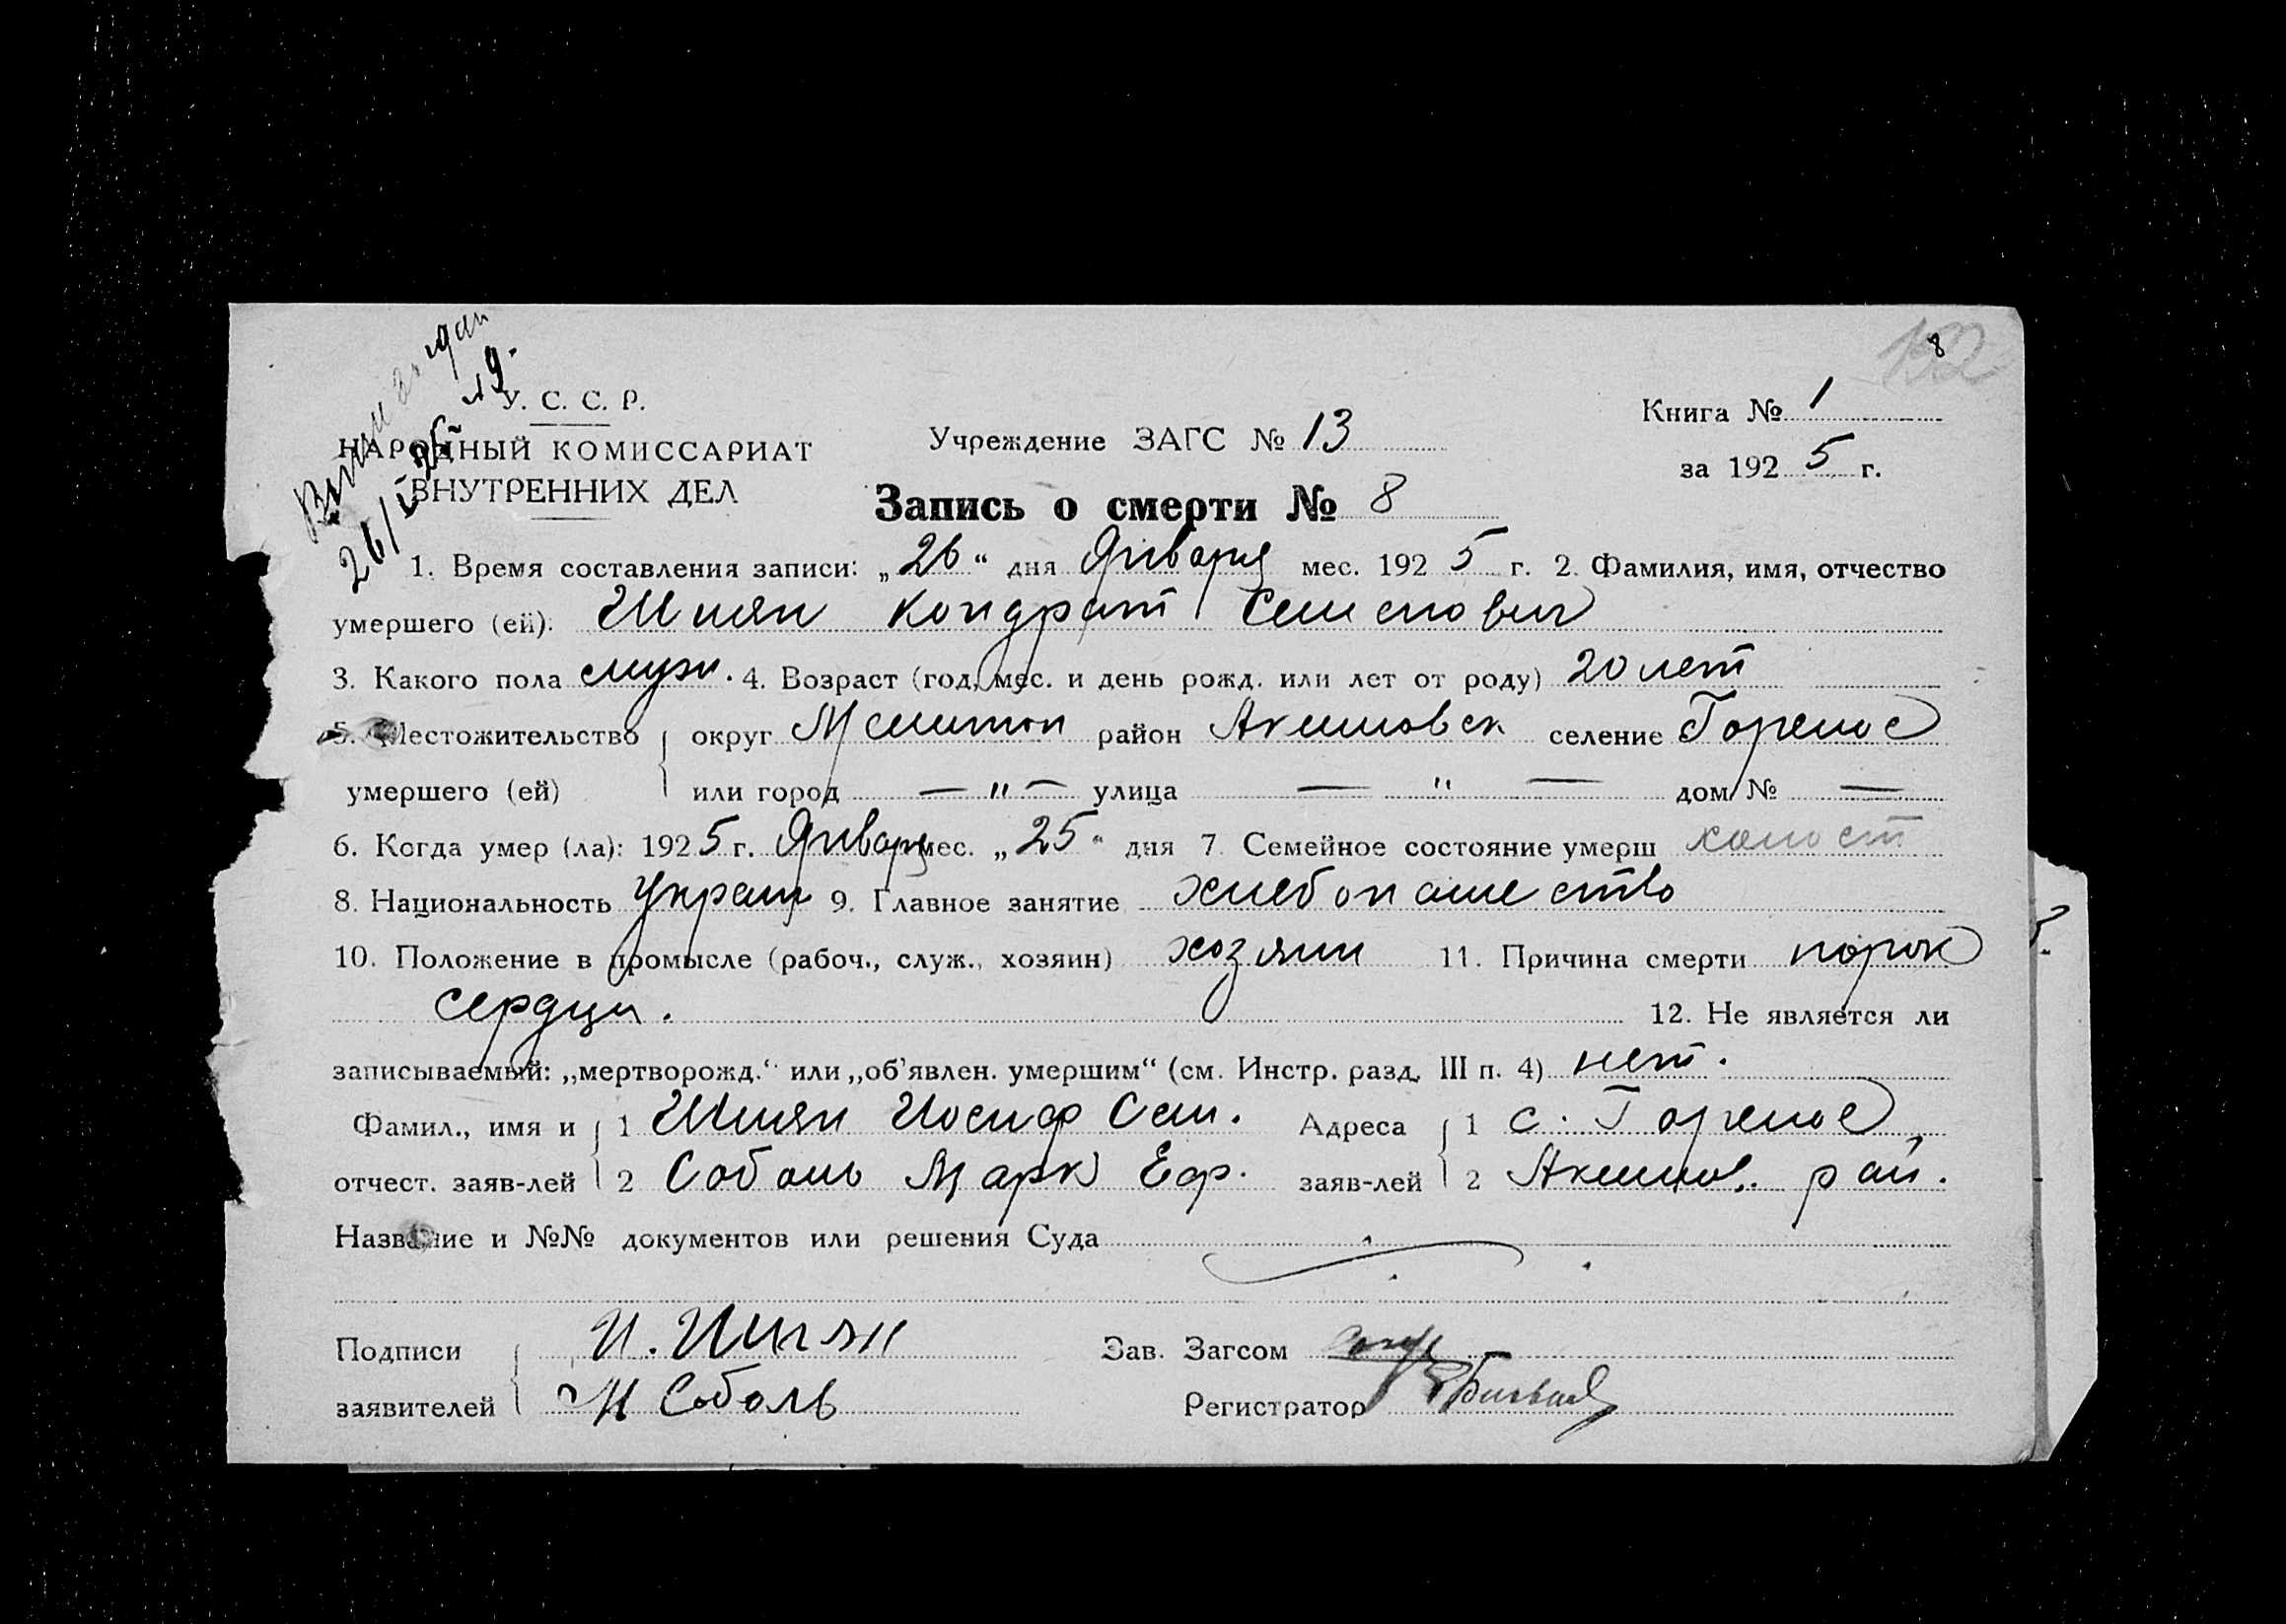 8
У. С. С. Р.
НАРОДНЫЙ КОМИССАРИАТ
ВНУТРЕННИХ ДЕЛ
26/I 25
Учреждение ЗАГС № 13
Книга № 1
за 1925 г.
Запись о смерти № 8
1. Время составления записи: „26“ дня Января мес. 1925 г. 2. Фамилия, имя, отчество
умершего (ей): Шиян Кондрат Семенович
3. Какого пола муж. 4. Возраст (год, мес. и день рожд. или лет от роду) 20 лет
5. Местожительство округ Мелитоп район Акимовск селение Горелое
умершего (ей) или город — " — улица — " — дом № —
6. Когда умер (ла): 1925 г. Января мес. „25“ дня 7. Семейное состояние умерш холост
8. Национальность Украин 9. Главное занятие хлебопашество
10. Положение в промысле (рабоч., служ., хозяин) хозяин 11. Причина смерти порок
сердца. 12. Не является ли
записываемый: „мертворожд.“ или „об'явлен. умершим“ (см. Инстр. разд. III п. 4) нет.
Фамил., имя и 1 Шиян Иосиф Сем. Адреса 1 с. Горелое,
отчест. заяв-лей 2 Соболь Марк Еф. заяв-лей 2 Акимов. рай.
Название и №№ документов или решения Суда
Подписи И. Шиян Зав. Загсом
заявителей М Соболь Регистратор